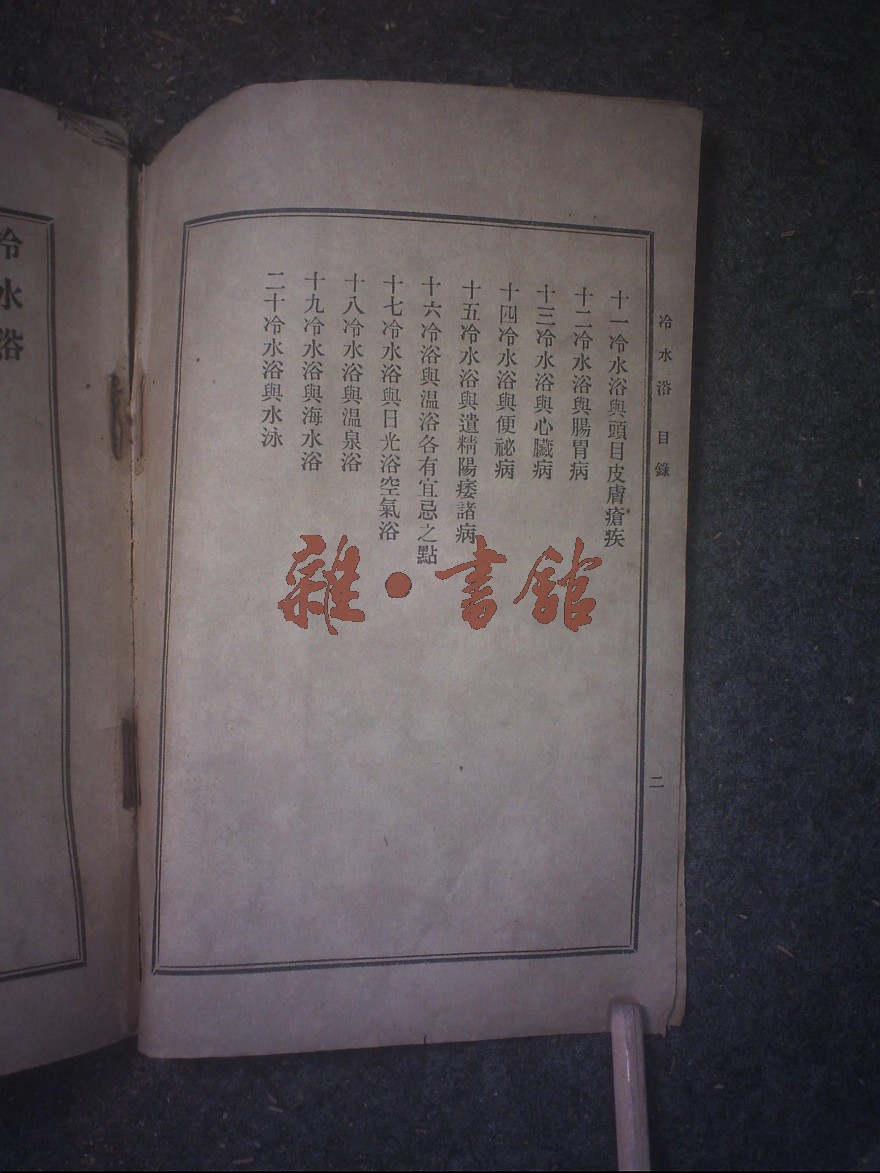 冷水浴 目錄
十一冷水浴與頭目皮膚瘡疾
十二冷水浴與腸胃病
十三冷水浴與心臟病
十四冷水浴與便祕病
十五冷水浴與遺精陽痿諸病
十六冷浴與温浴各有宜忌之點
十七冷水浴與日光浴空氣浴
十八冷水浴與温泉浴
十九冷水浴與海水浴
二十冷水浴與水泳
二
雜·書館
冷水浴